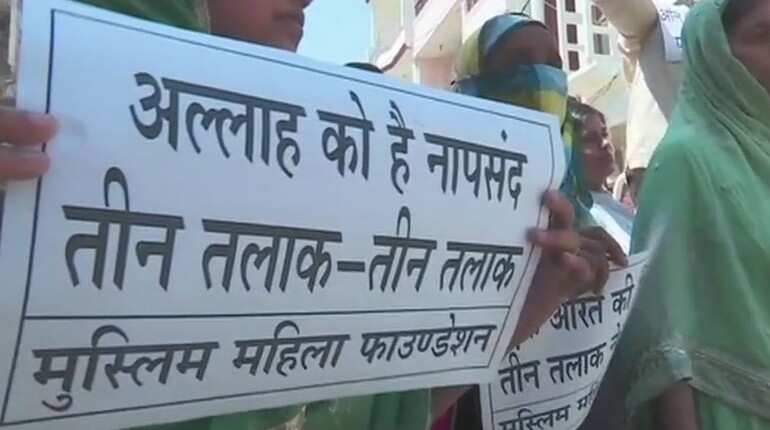 अल्लाह को है नापसंद
तीन तलाक–तीन तलाक
मुस्लिम महिला फाउण्डेशन
औरत की
तीन तलाक
मुस्लिम